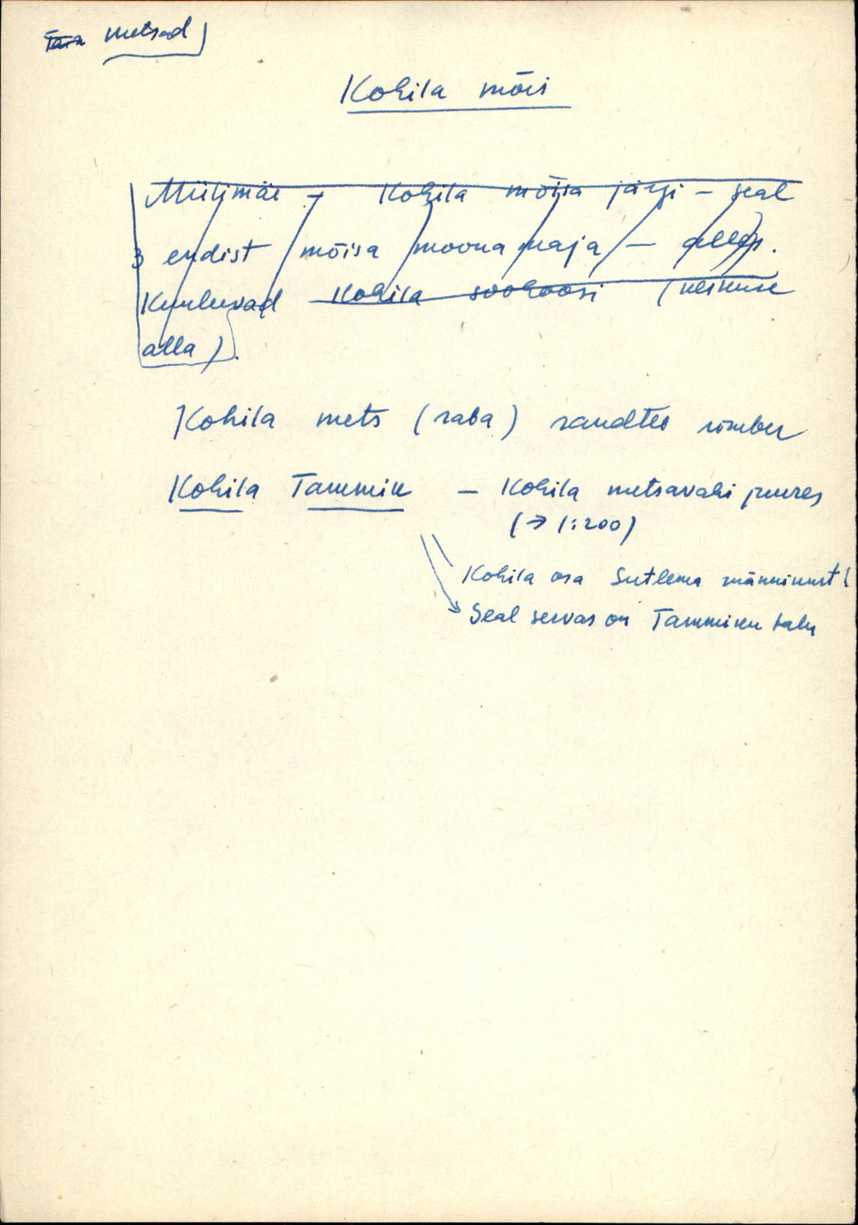 metsad
Kohila mõis
Miilimäe – Kohila mõisa järgi – seal
3 endist mõisa moona maja – allesp.
Kuuluvad Kohila sovhoosi (keskuse
alla).
Kohila mets (raba) raudtee ümber
Kohila Tammik – Kohila metsavahi juures
(→ 1:200)
Kohila osa Sutlema männikust!
Seal servas on Tammiku talu